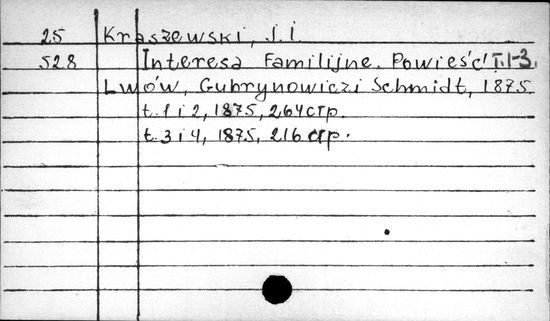 25 Kraszewski, J.I
528 Interesa Familijne. Powieść! T.1-3.
Lwów, Gubrynowicz i Schmidt, 1875.
t. 1 i 2, 1875, 264 стр.
t. 3 i 4, 1875, 216 стр.